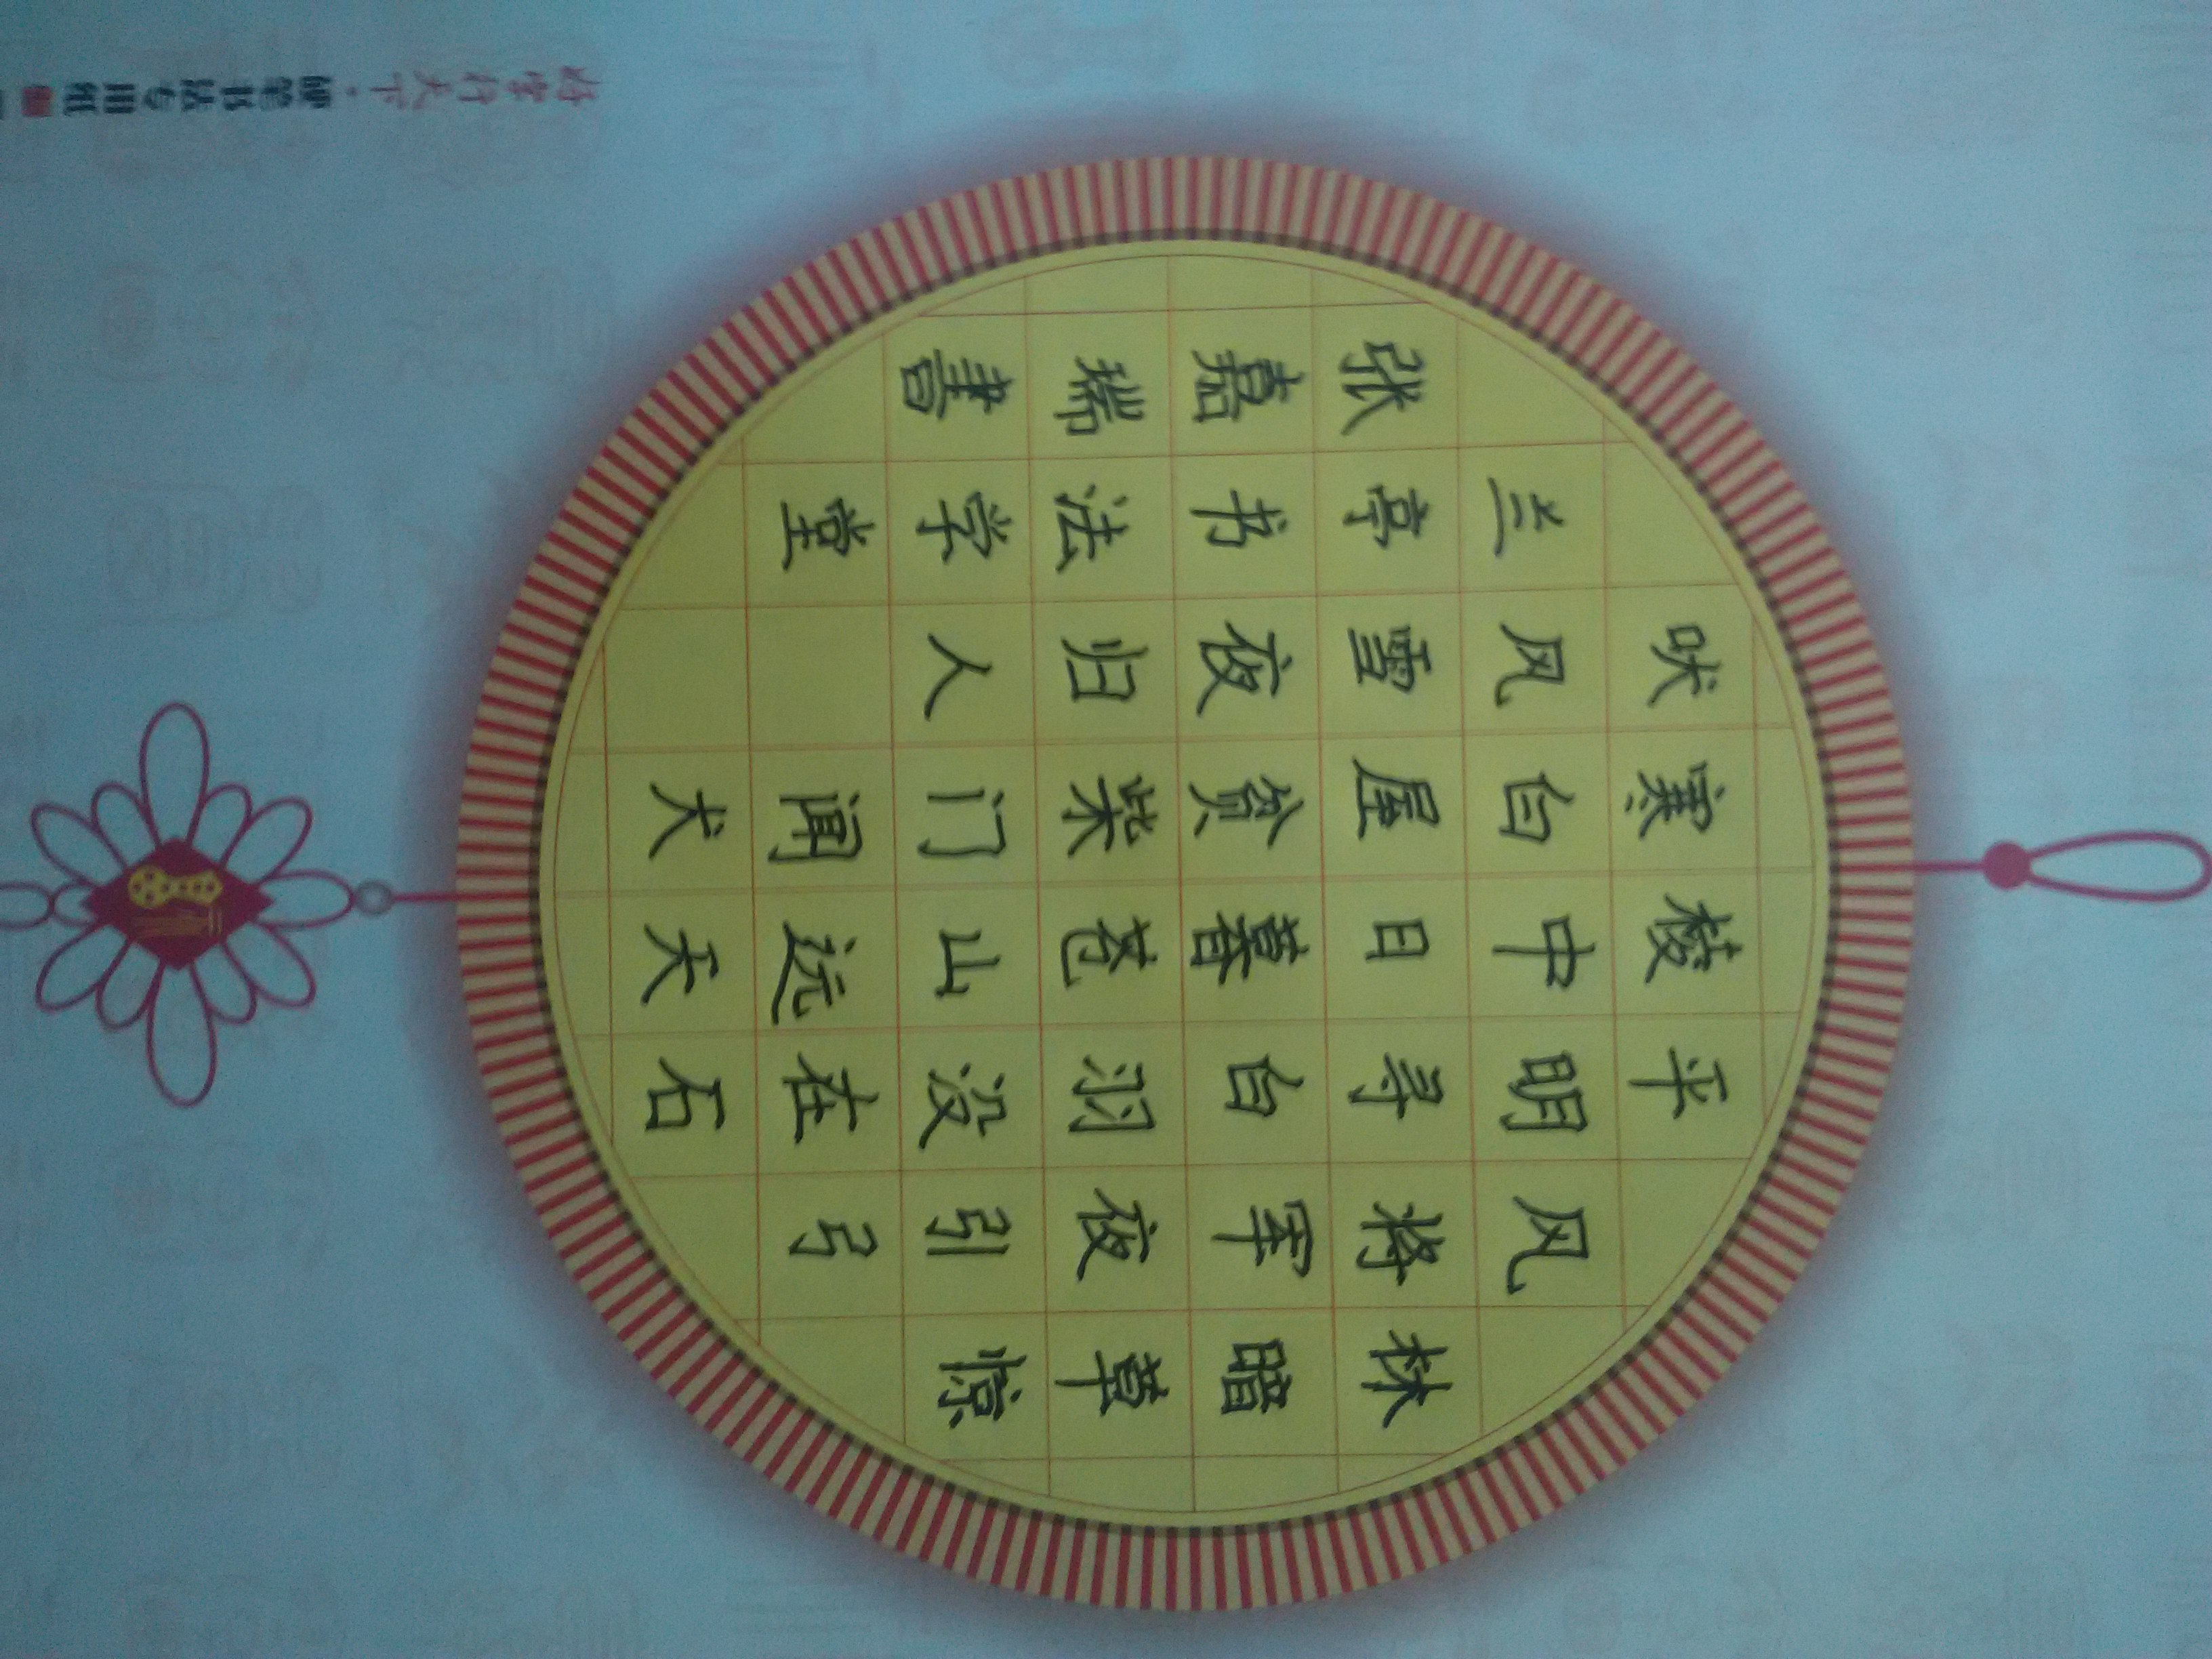 林暗草惊
风将军夜引弓
平明寻白羽没在石
棱中日暮苍山远天
寒白屋贫柴门闻犬
吠风雪夜归人
兰亭书法学堂
张嘉瑞書
好字行天下·硬笔书法专用纸